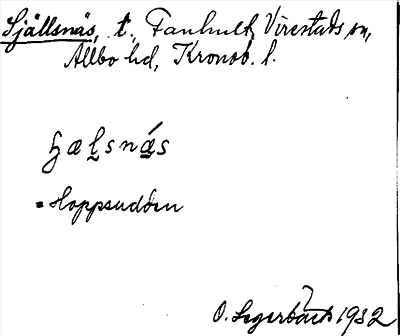 Själlsnäs, t., Fanhult, Virestads sn,
Allbo hd, Kronob. l.
ɧæl̬sná̬s
= Hoppsudden
O. Segerbäck 1932